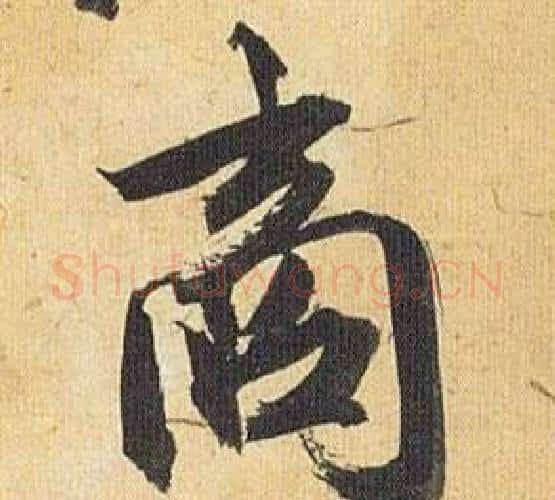 商
Shufawang.CN